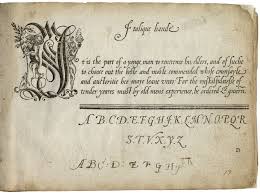 Italique hande
It is the part of a yonge man to reuerence his elders, and of suche
to choose out the beste and moste commended whose counsayle
and auctoritie hee maye leane vnto: For the vnskilfulnesse of
tender yeares must by old mens experience, be ordered & gouerned.
A B C D E F G H I K L M N O P Q R
S. T. V. X. Y. Z
A B C D E F G H